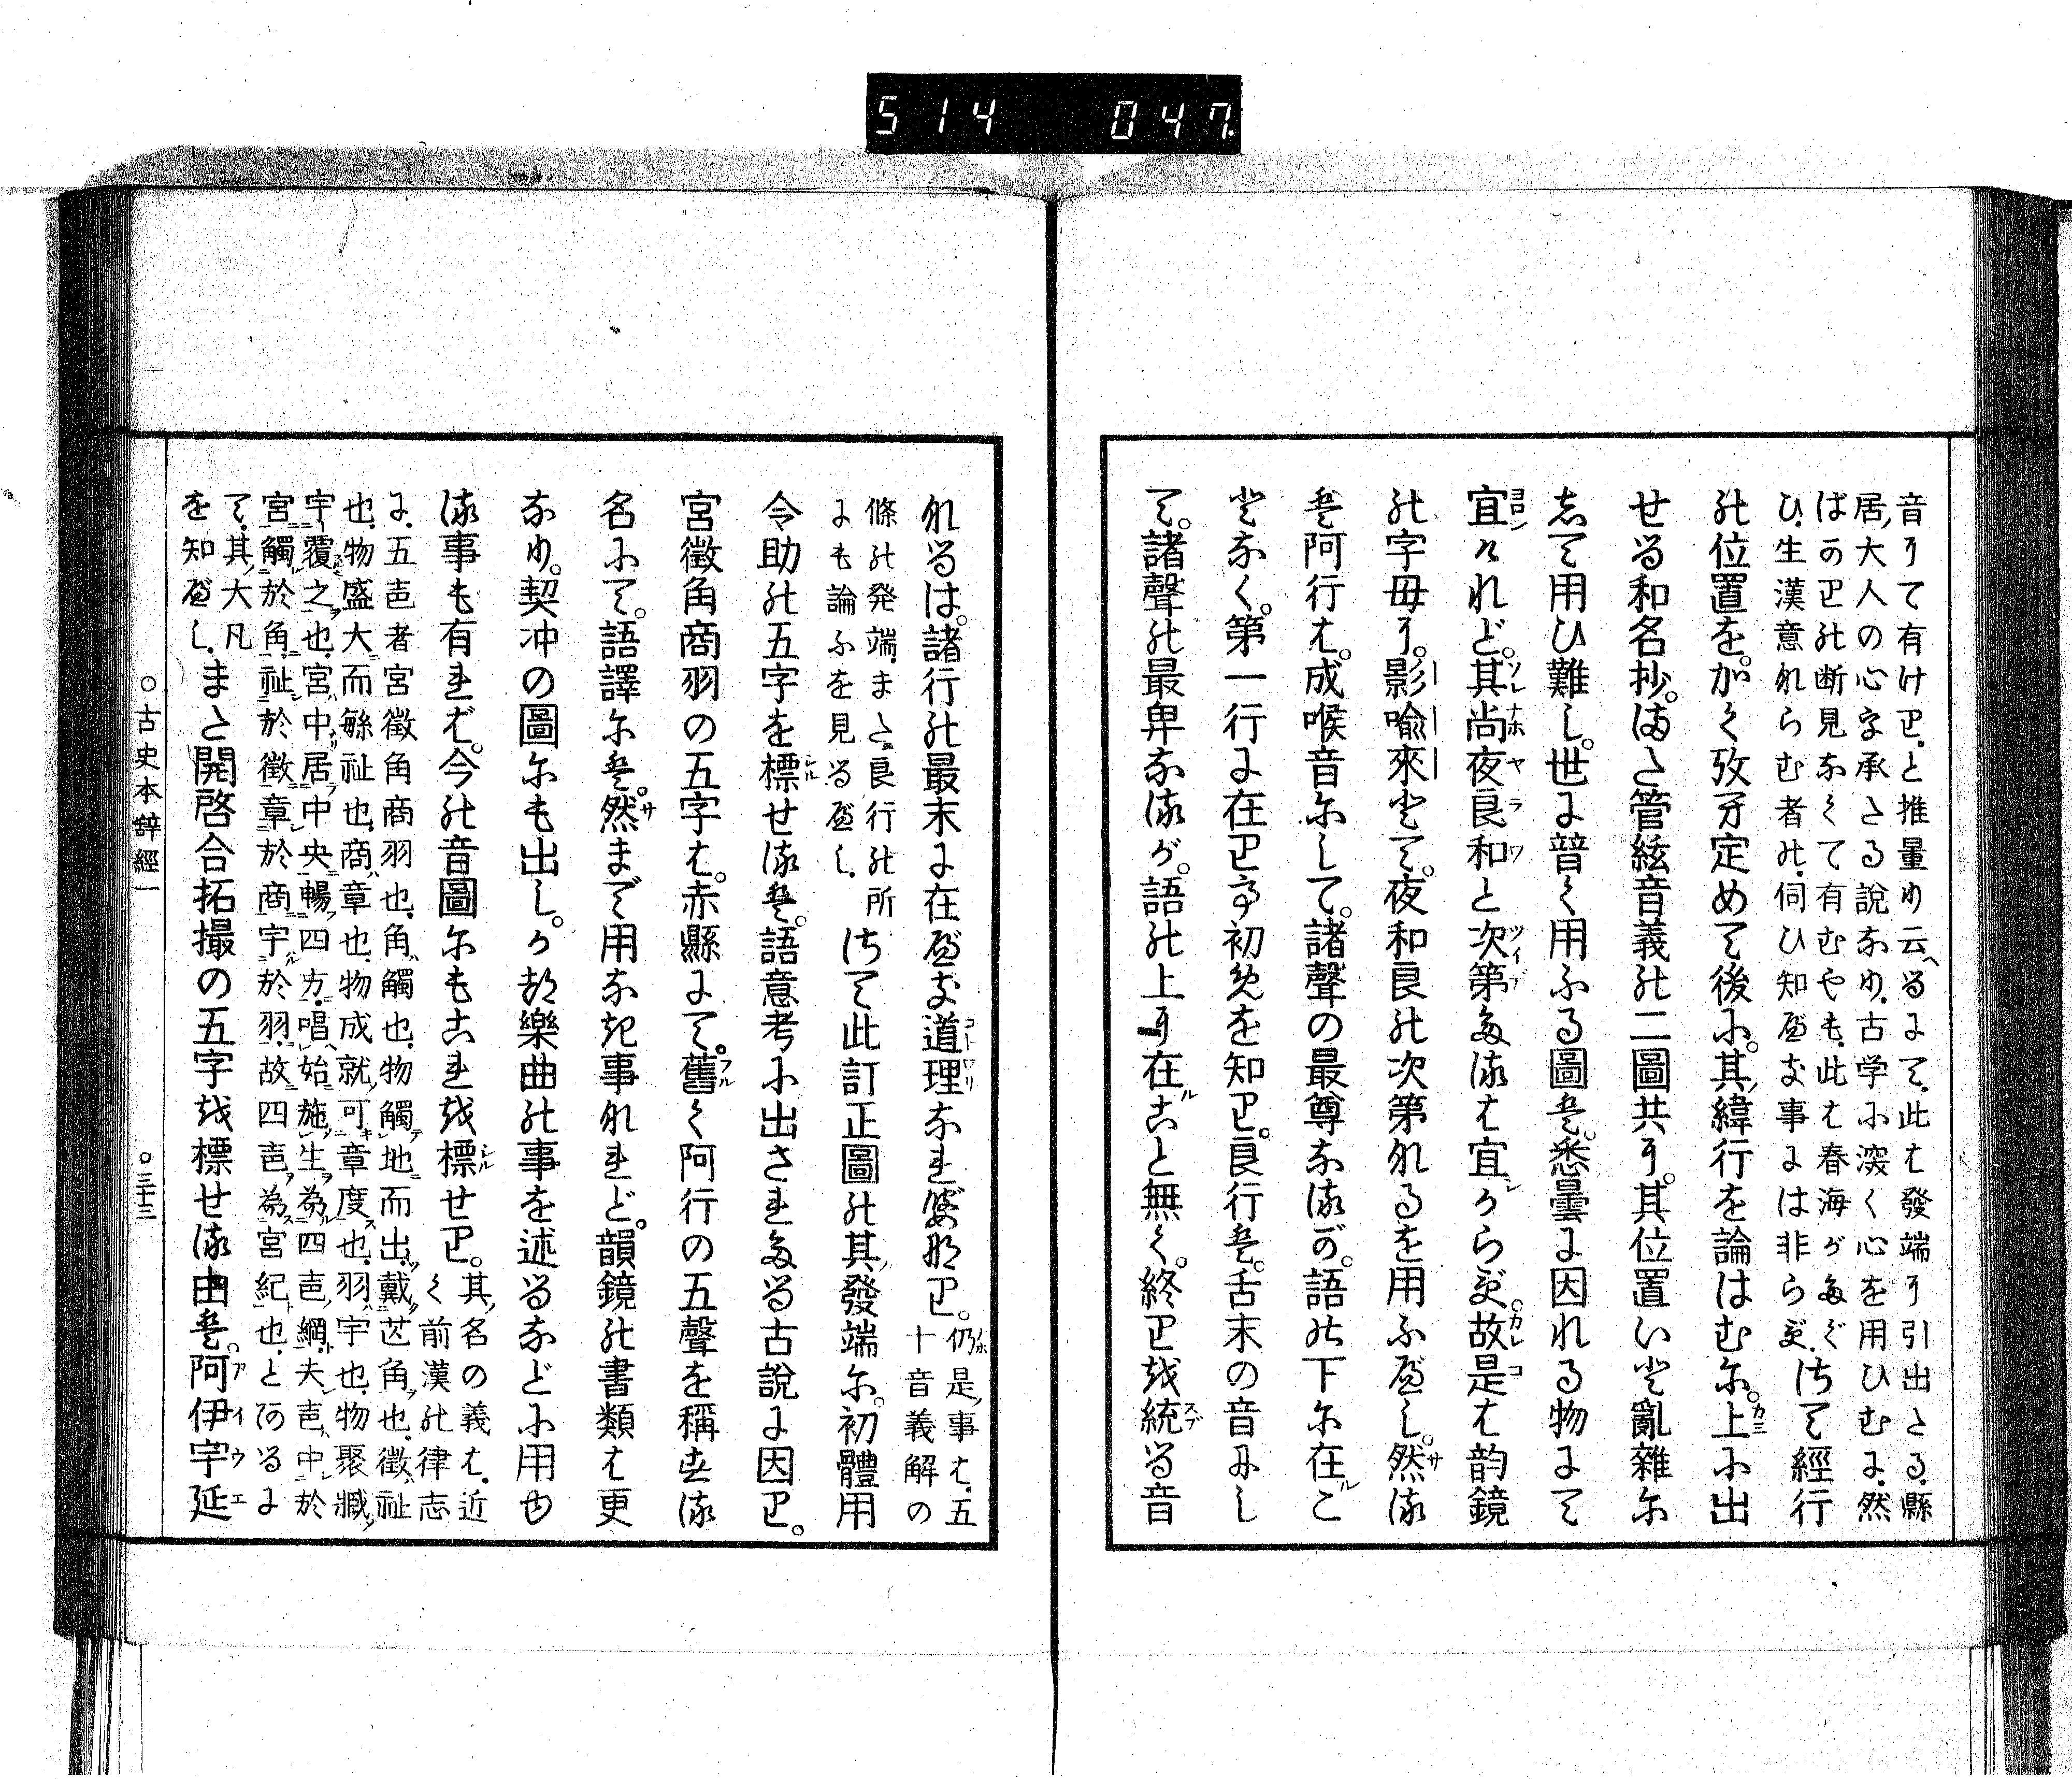 514 047.
音りて有けむ.と推量り云へるにて.此は發端り引出たる.縣
居ノ大人の心を承たる說なり.古学に深く心を用ひむに.然
ばかりの断見なくて有むやも.此は春海がなぐ
ひ.生漢意ならむ者の.伺ひ知べき事には非らず.
さて經行
の位置を。かく攷み定めて後に。其ノ緯行を論はむに。上に出
せる和名抄。また管絃音義の二圖共に。其位置いと亂雜に
して用ひ難し。世に普く用ふる圖は。悉曇に因れる物にて
宜けれど。其尚夜良和と次第たるは宜からず。故是は韵鏡
の字母に。影喩來とて。夜和良の次第なるを用ふべし。然る
は阿行は。成喉音にして。諸聲の最尊なるが。語の下に在ルこ
となく。第一行に在て初めを知り。良行は。舌末の音にし
て。諸聲の最卑なるが。語の上に在ルこと無く。終りを統る音
なるは。諸行の最末に在べき道理なればなり。
仍是ノ事は.五
十音義解の
條の発端.また.良行の所
にも論ふを見るべし.
さて此訂正圖の其ノ發端に。初體用
令助の五字を標せるは。語意考に出されたる古說に因り。
宮徵角商羽の五字は。赤縣にて。舊く阿行の五聲を稱する
名にて。語譯には。然まで用なき事なれど。韻鏡の書類は更
なり。契冲の圖にも出し。かつ樂曲の事を述るなどに用る
る事も有れば。今の音圖にもこれを標せり。
其ノ名の義は.近
く前漢の律志
に.五声者宮徵角商羽也.角ハ觸也.物觸地而出.戴芒角也.徵ハ祉
也.物盛大而緐祉也.商ハ章也.物成就可章度也.羽ハ宇也.物聚臧
宇覆之也.宮ハ中居中央暢四方.唱始施生為四声綱.夫声中於
宮觸於角.祉於徵章於商宇於羽.故四声為宮紀也.とあるに
て.其ノ大凡
を知べし.
また開啓合拓撮の五字を標せる由は。阿伊宇延
○古史本辭經一
○三十三